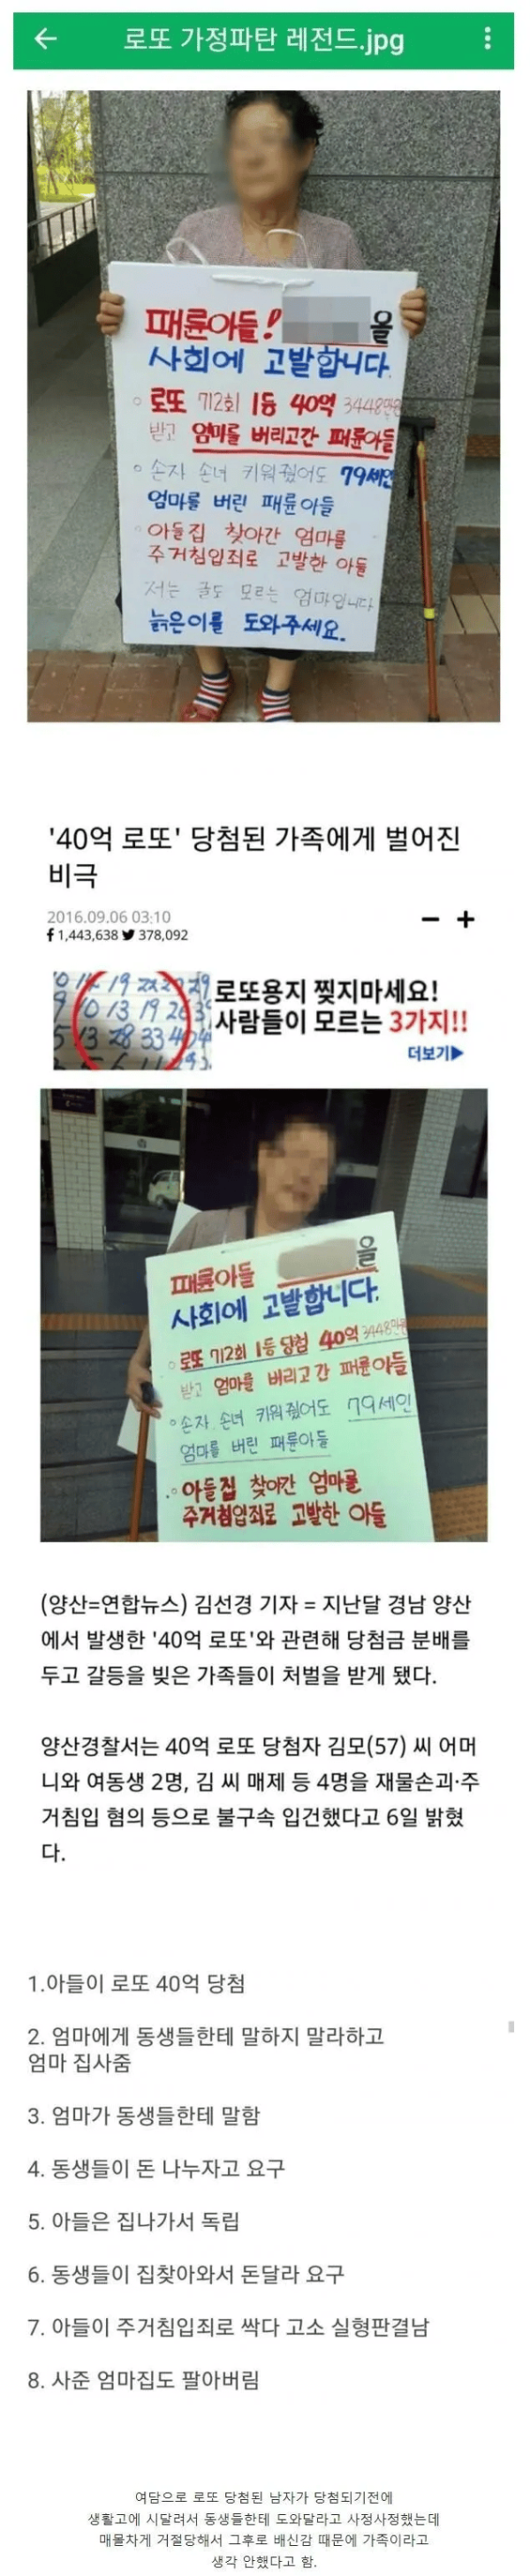 로또 가정파탄 레전드.jpg
패륜아들! 을
사회에 고발합니다.
로또 712회 1등 40억 3448만원
받고 엄마를 버리고간 패륜아들
손자 손녀 키워줬어도 79세인
엄마를 버린 패륜아들
아들집 찾아간 엄마를
주거침입죄로 고발한 아들
저는 글도 모르는 엄마입니다
늙은이를 도와주세요.
'40억 로또' 당첨된 가족에게 벌어진
비극
2016.09.06 03:10
1,443,638 378,092
로또용지 찢지마세요!
사람들이 모르는 3가지!!
더보기▶
패륜아들 을
사회에 고발합니다.
로또 712회 1등당첨 40억 3448만원
받고 엄마를 버리고간 패륜아들
손자 손녀 키워줬어도 79세인
엄마를 버린 패륜아들
아들집 찾아간 엄마를
주거침입죄로 고발한 아들
(양산=연합뉴스) 김선경 기자 = 지난달 경남 양산
에서 발생한 '40억 로또'와 관련해 당첨금 분배를
두고 갈등을 빚은 가족들이 처벌을 받게 됐다.
양산경찰서는 40억 로또 당첨자 김모(57) 씨 어머
니와 여동생 2명, 김 씨 매제 등 4명을 재물손괴·주
거침입 혐의 등으로 불구속 입건했다고 6일 밝혔
다.
1.아들이 로또 40억 당첨
2. 엄마에게 동생들한테 말하지 말라하고
엄마 집사줌
3. 엄마가 동생들한테 말함
4. 동생들이 돈 나누자고 요구
5. 아들은 집나가서 독립
6. 동생들이 집찾아와서 돈달라 요구
7. 아들이 주거침입죄로 싹다 고소 실형판결남
8. 사준 엄마집도 팔아버림
여담으로 로또 당첨된 남자가 당첨되기전에
생활고에 시달려서 동생들한테 도와달라고 사정사정했는데
매몰차게 거절당해서 그후로 배신감 때문에 가족이라고
생각 안했다고 함.